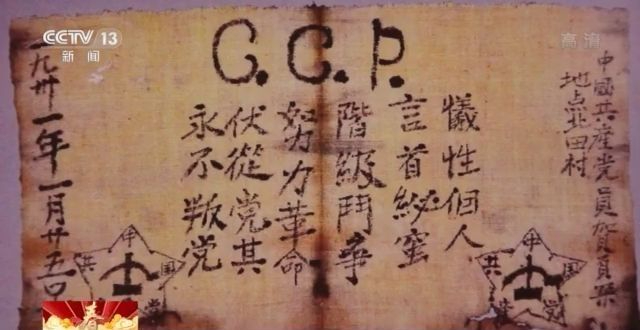 CCTV 13
新闻
高清
C.C.P.
中國共産党員賀頁朵
地点北田村
犧牲個人
言首秘蜜
階級鬥争
努力革命
伏從党其
永不叛党
一九卅一年一月廿五日
中国共党
中国共党